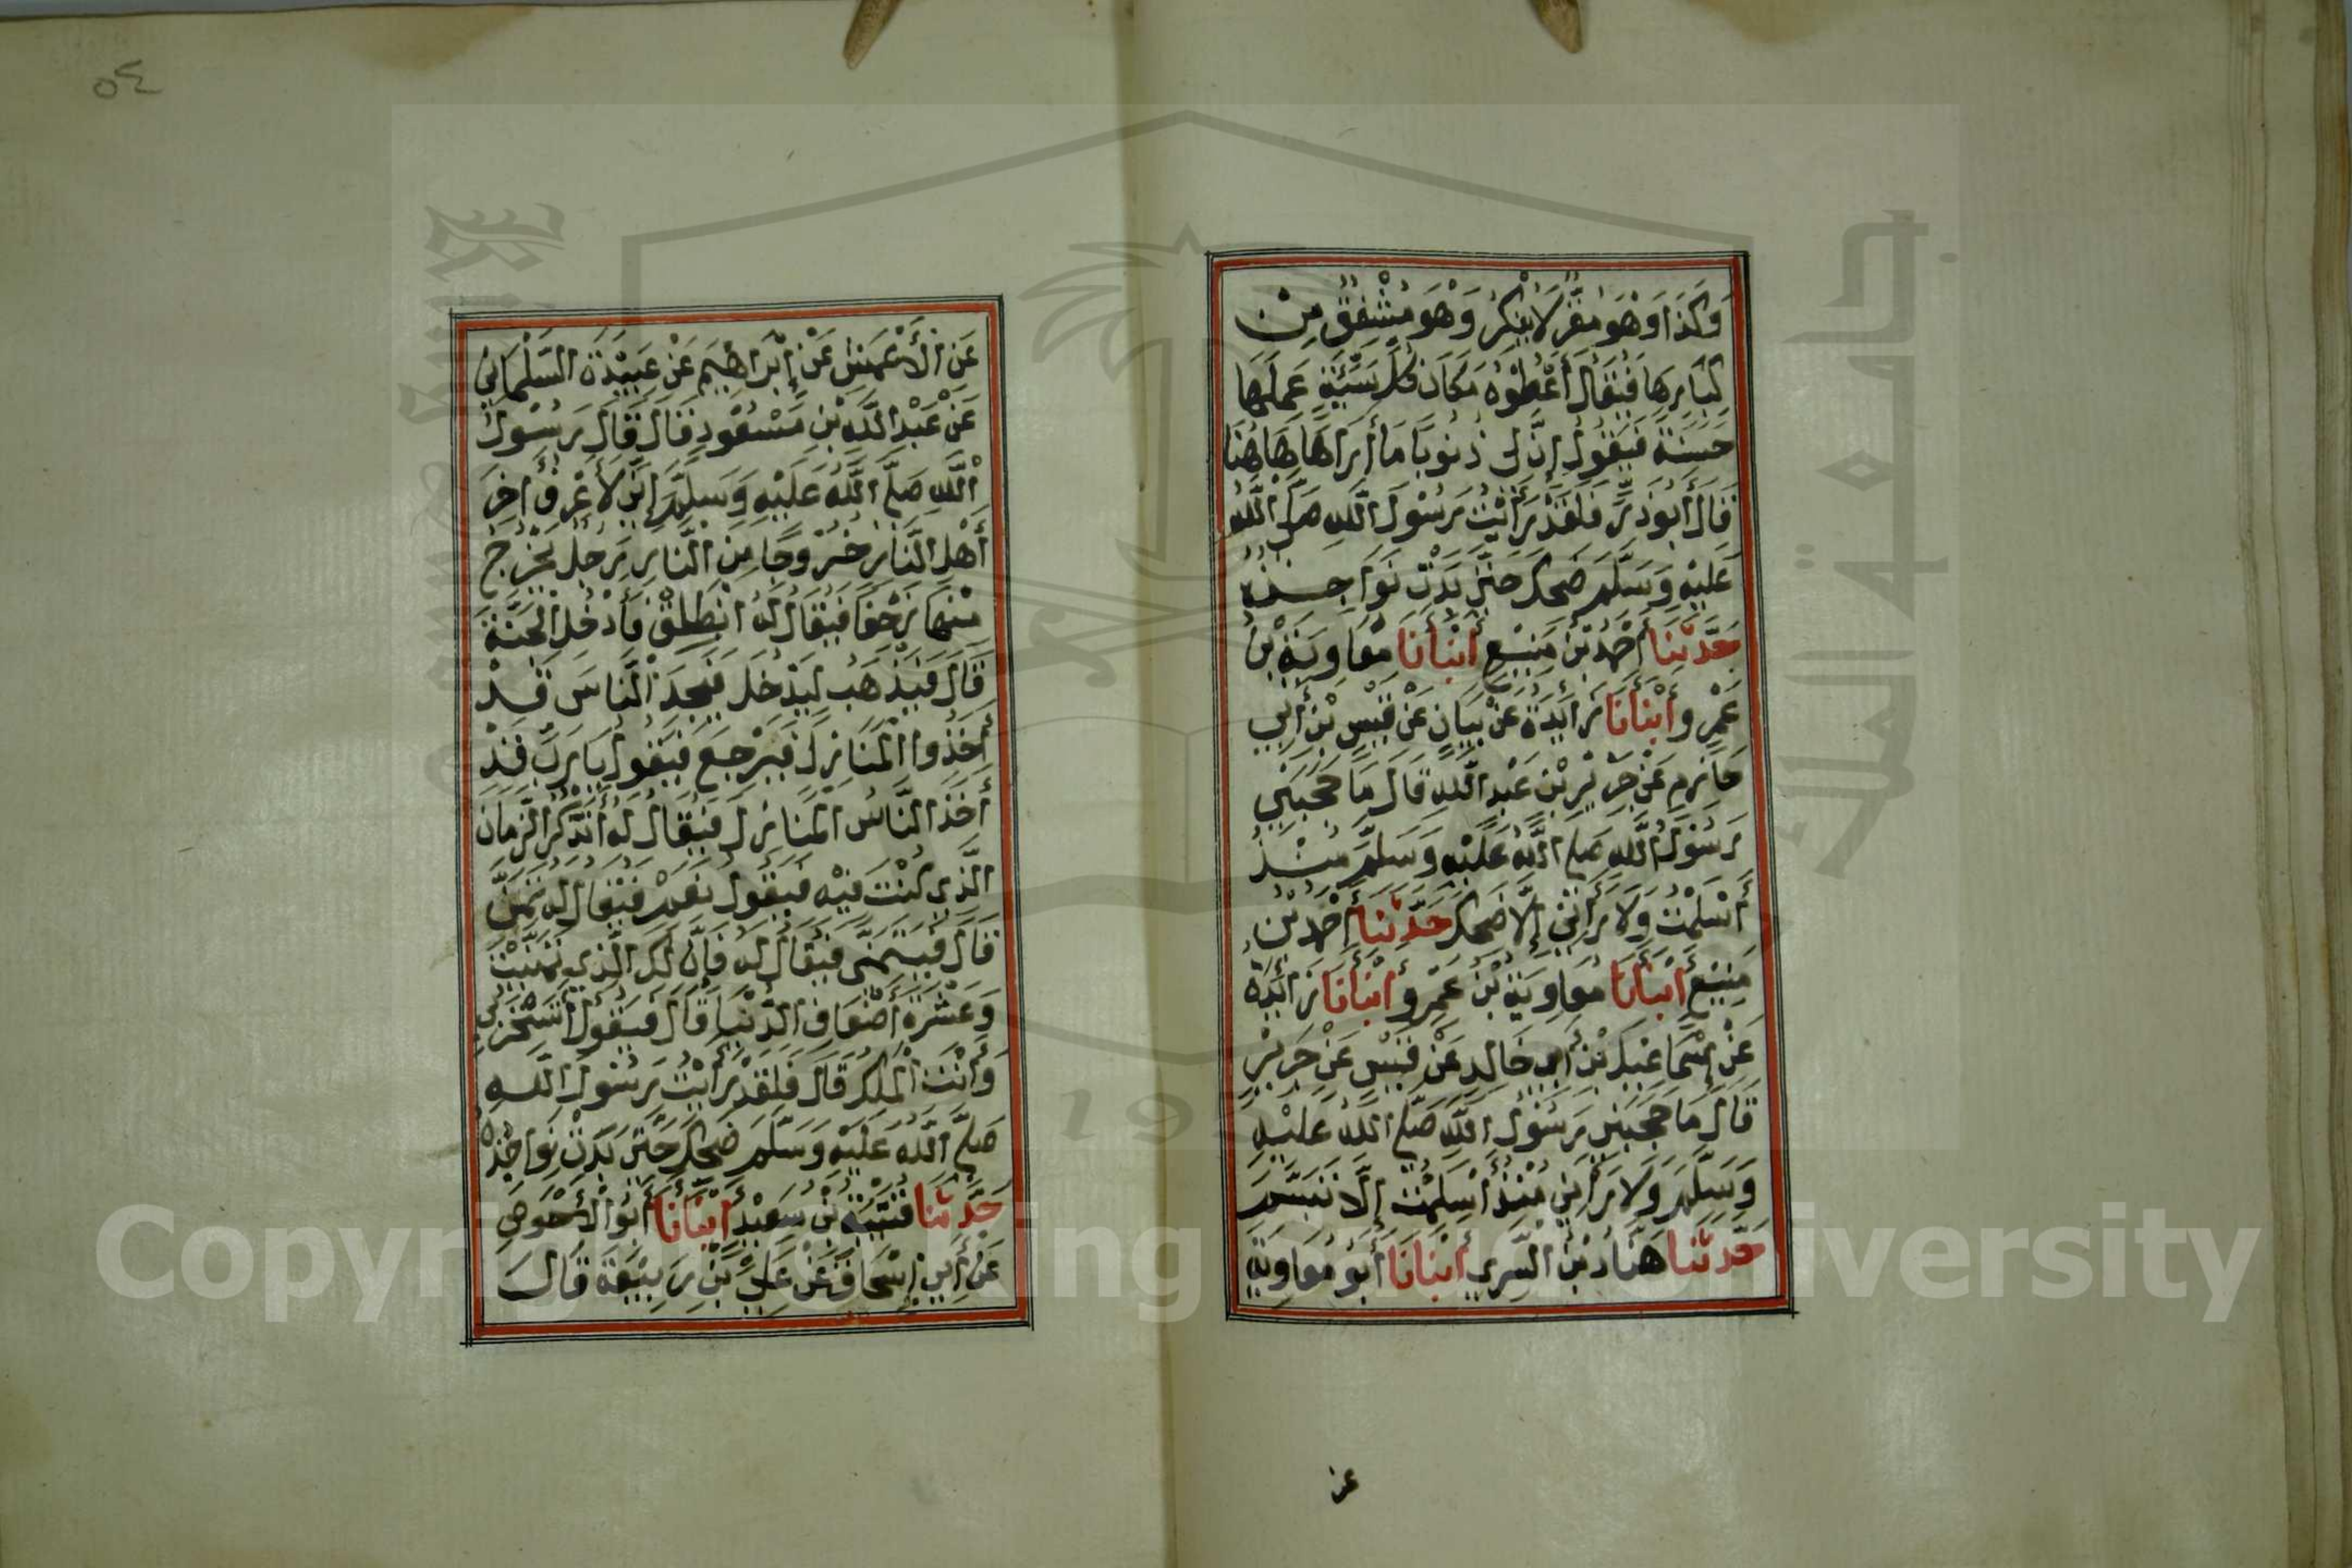 وَكَذَا وَهُوَ مُقِرٌّ لَا يُنْكِرُ وَهُوَ مُشْفِقٌ مِنْ
كِبَارِهَا فَيُقَالُ أَعْطُوْهُ مَكَانَ كُلِّ سَيِّئَةٍ عَمِلَهَا
حَسَنَةً فَيَقُوْلُ إِنَّ لِي ذُنُوْبًا مَا أَرَاهَا هَاهُنَا
قَالَ أَبُوْ ذَرٍّ فَلَقَدْ رَأَيْتُ رَسُوْلَ اللَّهِ صَلَّى اللَّهُ
عَلَيْهِ وَسَلَّمَ ضَحِكَ حَتَّى بَدَتْ نَوَاجِذُهُ
حَدَّثَنَا أَحْمَدُ بْنُ مَنِيْعٍ أَنْبَأَنَا مُعَاوِيَةُ بْنُ
عَمْرٍو أَنْبَأَنَا زَائِدَةُ عَنْ بَيَانٍ عَنْ قَيْسِ بْنِ أَبِي
حَازِمٍ عَنْ جَرِيْرِ بْنِ عَبْدِ اللَّهِ قَالَ مَا حَجَبَنِي
رَسُوْلُ اللَّهِ صَلَّى اللَّهُ عَلَيْهِ وَسَلَّمَ مُنْذُ
أَسْلَمْتُ وَلَا رَأَنِي إِلَّا ضَحِكَ حَدَّثَنَا أَحْمَدُ بْنُ
مَنِيْعٍ أَنْبَأَنَا مُعَاوِيَةُ بْنُ عَمْرٍو أَنْبَأَنَا زَائِدَةُ
عَنْ إِسْمَاعِيْلَ بْنِ أَبِي خَالِدٍ عَنْ قَيْسٍ عَنْ جَرِيْرٍ
قَالَ مَا حَجَبَنِي رَسُوْلُ اللَّهِ صَلَّى اللَّهُ عَلَيْهِ
وَسَلَّمَ وَلَا رَأَنِي مُنْذُ أَسْلَمْتُ إِلَّا تَبَسَّمَ
حَدَّثَنَا هَنَّادُ بْنُ السَّرِيِّ أَنْبَأَنَا أَبُوْ مُعَاوِيَةَ
عن
٥٤
عَنِ الْأَعْمَشِ عَنْ إِبْرَاهِيْمَ عَنْ عَبِيْدَةَ السَّلْمَانِيِّ
عَنْ عَبْدِ اللَّهِ بْنِ مَسْعُوْدٍ قَالَ قَالَ رَسُوْلُ
اللَّهِ صَلَّى اللَّهُ عَلَيْهِ وَسَلَّمَ إِنِّي لَأَعْرِفُ أَخِرَ
أَهْلِ النَّارِ خُرُوْجًا مِنَ النَّارِ رَجُلٌ يَخْرُجُ
مِنْهَا زَحْفًا فَيُقَالُ لَهُ انْطَلِقْ فَأَدْخُلِ الْجَنَّةَ
قَالَ فَيَذْهَبُ لِيَدْخُلَ فَيَجِدُ النَّاسَ قَدْ
أَخَذُوا الْمَنَازِلَ فَيَرْجِعُ فَيَقُوْلُ يَا رَبِّ قَدْ
أَخَذَ النَّاسُ الْمَنَازِلَ فَيُقَالُ لَهُ أَتَذْكُرُ الزَّمَانَ
الَّذِي كُنْتَ فِيْهِ فَيَقُوْلُ نَعَمْ فَيُقَالُ لَهُ تَمَنَّ
قَالَ فَيَتَمَنَّى فَيُقَالُ لَهُ فَإِنَّ لَكَ الَّذِي تَمَنَّيْتَ
وَعَشْرَةَ أَضْعَافِ الدُّنْيَا قَالَ فَيَقُوْلُ أَتَسْخَرُ بِي
وَأَنْتَ الْمَلِكُ قَالَ فَلَقَدْ رَأَيْتُ رَسُوْلَ اللَّهِ
صَلَّى اللَّهُ عَلَيْهِ وَسَلَّمَ ضَحِكَ حَتَّى بَدَتْ نَوَاجِذُهُ
حَدَّثَنَا قُتَيْبَةُ بْنُ سَعِيْدٍ أَنْبَأَنَا أَبُو الْأَحْوَصِ
عَنْ أَبِي إِسْحَاقَ عَنْ عَلِيِّ بْنِ رَبِيْعَةَ قَالَ
Copyright © King Saud University